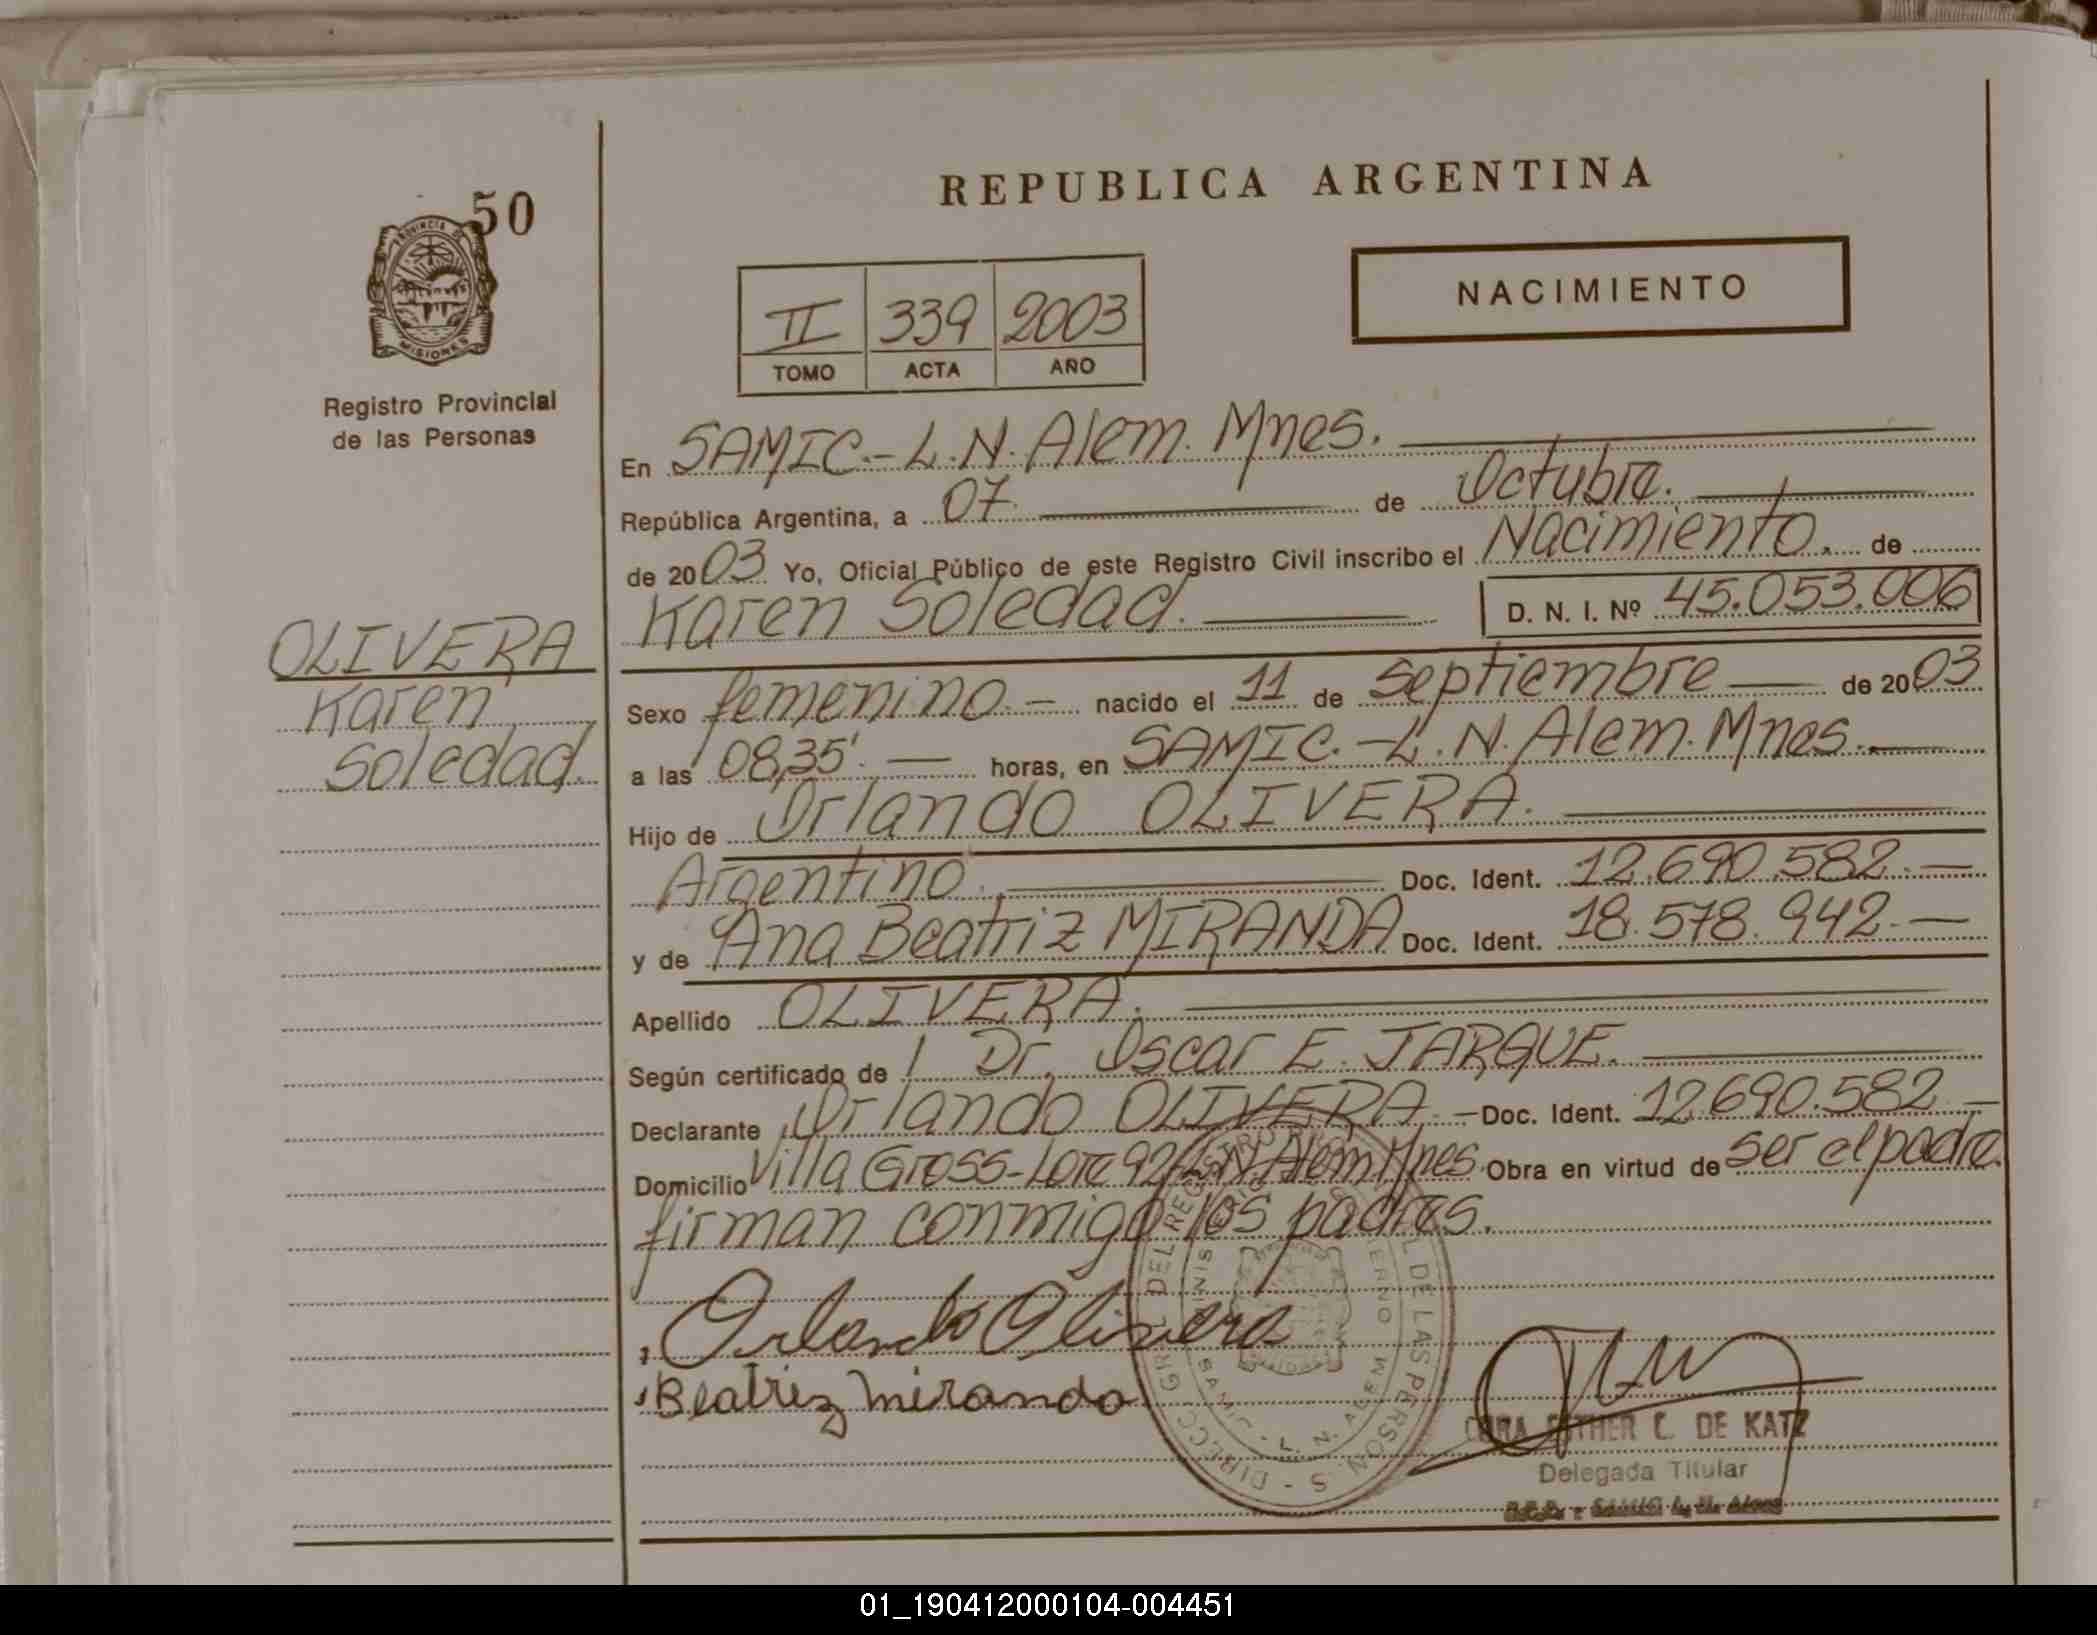 REPUBLICA ARGENTINA
50
PROVINCIA DE
MISIONES
NACIMIENTO
II 339 2003
TOMO ACTA AÑO
Registro Provincial
de las Personas
En SAMIC.- L.N. Alem. Mnes.
República Argentina, a 07. de Octubre.
de 2003 Yo, Oficial Público de este Registro Civil inscribo el Nacimiento. de
Karen Soledad. D. N. I. Nº 45.053.006
OLIVERA
Karen
Soledad.
Sexo femenino.- nacido el 11 de Septiembre de 2003
a las 08,35'. horas, en SAMIC.-L.N. Alem. Mnes.
Hijo de Orlando OLIVERA.
Argentino. Doc. Ident. 12.690.582.-
y de Ana Beatriz MIRANDA Doc. Ident. 18.578.942.-
Apellido OLIVERA.
Según certificado de Dr. Oscar E. JARQUE.
Declarante Orlando OLIVERA.- Doc. Ident. 12.690.582-
Domicilio Villa Gross-Lote 92 L.N. Alem Mnes. Obra en virtud de ser el padre.
firman conmigo los padres.
Orlando Olivera
Beatriz Miranda
SAMIC - L. N. ALEM
ESTHER C. DE KATZ
Delegada Titular
01_190412000104-004451